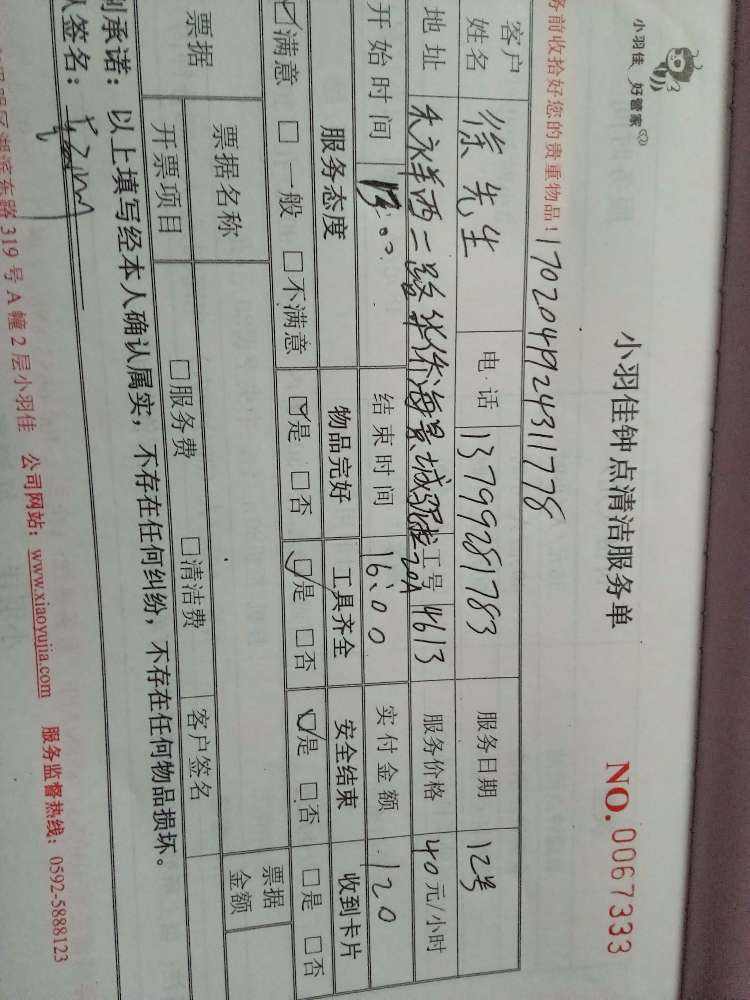 小羽佳 好管家
小羽佳钟点清洁服务单
NO. 0067333
务前收拾好您的贵重物品！1702041924311778
客户姓名 徐先生 电话 13799281783 服务日期 12号
地址 西二路华侨海景城 20A 工号 4613 服务价格 40元/小时
开始时间 结束时间 16:00 实付金额 120
服务态度 物品完好 工具齐全 安全结束 收到卡片
☑满意 □一般 □不满意 ☑是 □否 ☑是 □否 ☑是 □否 □是 □否
票据 票据名称 票据金额
开票项目 □服务费 □清洁费 客户签名
承诺：以上填写经本人确认属实，不存在任何纠纷，不存在任何物品损坏。
签名：
湖滨东路319号A幢2层小羽佳 公司网站：www.xiaoyujia.com 服务监督热线：0592-5888123